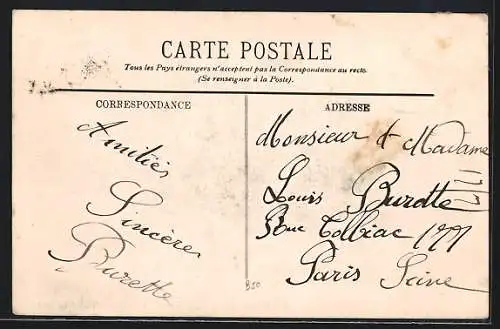 CARTE POSTALE
Tous les Pays étrangers n'acceptent pas la Correspondance au recto.
(Se renseigner à la Poste).
CORRESPONDANCE
Amitiés
Sincère
Burette
ADRESSE
Monsieur & Madame
Louis Burette
Rue Tolbiac 177
Paris Seine